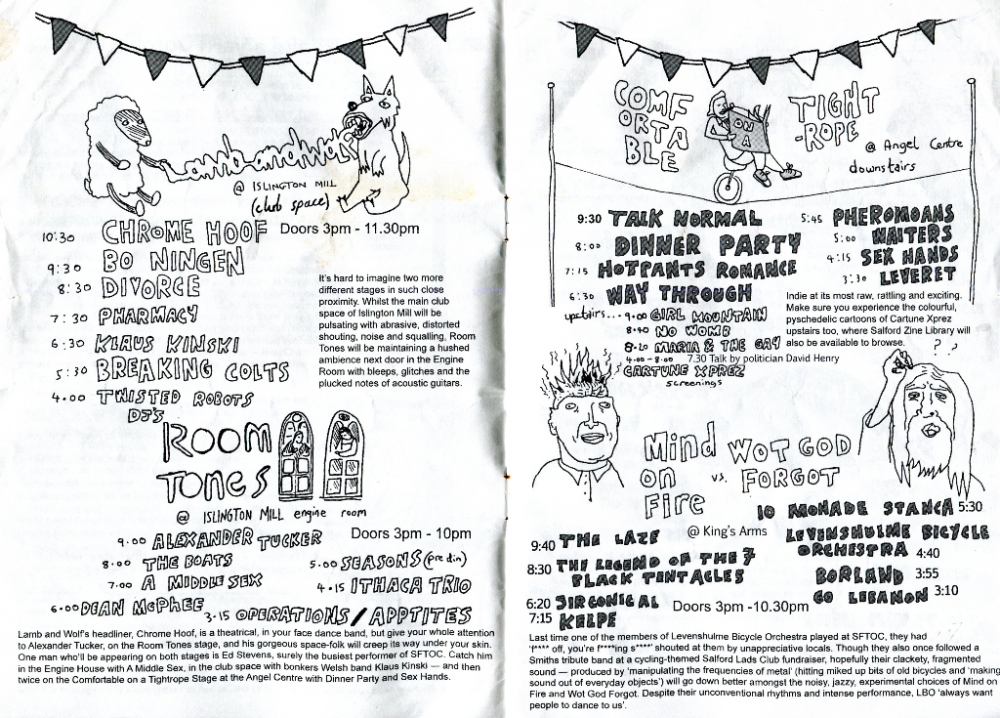 Lamb and Wolf
@ ISLINGTON MILL
(club space)
Doors 3pm - 11.30pm
10:30 CHROME HOOF
9:30 BO NINGEN
8:30 DIVORCE
7:30 PHARMACY
6:30 KLAUS KINSKI
5:30 BREAKING COLTS
4.00 TWISTED ROBOTS
DJ'S
It's hard to imagine two more
different stages in such close
proximity. Whilst the main club
space of Islington Mill will be
pulsating with abrasive, distorted
shouting, noise and squalling, Room
Tones will be maintaining a hushed
ambience next door in the Engine
Room with bleeps, glitches and the
plucked notes of acoustic guitars.
ROOM
TONES
@ ISLINGTON MILL engine room
Doors 3pm - 10pm
9.00 ALEXANDER TUCKER
8.00 THE BOATS
7.00 A MIDDLE SEX
6.00 DEAN McPHEE
5.00 SEASONS (pre din)
4.15 ITHACA TRIO
3.15 OPERATIONS / APPTITES
Lamb and Wolf's headliner, Chrome Hoof, is a theatrical, in your face dance band, but give your whole attention
to Alexander Tucker, on the Room Tones stage, and his gorgeous space-folk will creep its way under your skin.
One man who'll be appearing on both stages is Ed Stevens, surely the busiest performer of SFTOC. Catch him
in the Engine House with A Middle Sex, in the club space with bonkers Welsh band Klaus Kinski — and then
twice on the Comfortable on a Tightrope Stage at the Angel Centre with Dinner Party and Sex Hands.
COMF
ORTA
BLE
ON
A
TIGHT
-ROPE
@ Angel Centre
downstairs
9:30 TALK NORMAL
8:00 DINNER PARTY
7:15 HOTPANTS ROMANCE
6:30 WAY THROUGH
5:45 PHEROMOANS
5:00 WAITERS
4:15 SEX HANDS
3:30 LEVERET
upstairs... 9.00 GIRL MOUNTAIN
8.40 NO WOMB
8.20 MARIA & THE GAY
7.30 Talk by politician David Henry
4.00 - 8.00
CARTUNE XPREZ
screenings
Indie at its most raw, rattling and exciting.
Make sure you experience the colourful,
pyschedelic cartoons of Cartune Xprez
upstairs too, where Salford Zine Library will
also be available to browse.
? ?
Mind
on
Fire
vs.
WOT GOD
FORGOT
@ King's Arms
Doors 3pm -10.30pm
9:40 THE LAZE
8:30 THE LEGEND OF THE 7
BLACK TENTACLES
6:20 SIRCONICAL
7:15 KELPE
IO MONADE STANCA 5:30
LEVENSHULME BICYCLE
ORCHESTRA 4:40
BORLAND 3:55
GO LEBANON 3:10
Last time one of the members of Levenshulme Bicycle Orchestra played at SFTOC, they had
'f**** off, you're f****ing s****' shouted at them by unappreciative locals. Though they also once followed a
Smiths tribute band at a cycling-themed Salford Lads Club fundraiser, hopefully their clackety, fragmented
sound — produced by 'manipulating the frequencies of metal' (hitting miked up bits of old bicycles and 'making
sound out of everyday objects') will go down better amongst the noisy, jazzy, experimental choices of Mind on
Fire and Wot God Forgot. Despite their unconventional rhythms and intense performance, LBO 'always want
people to dance to us'.